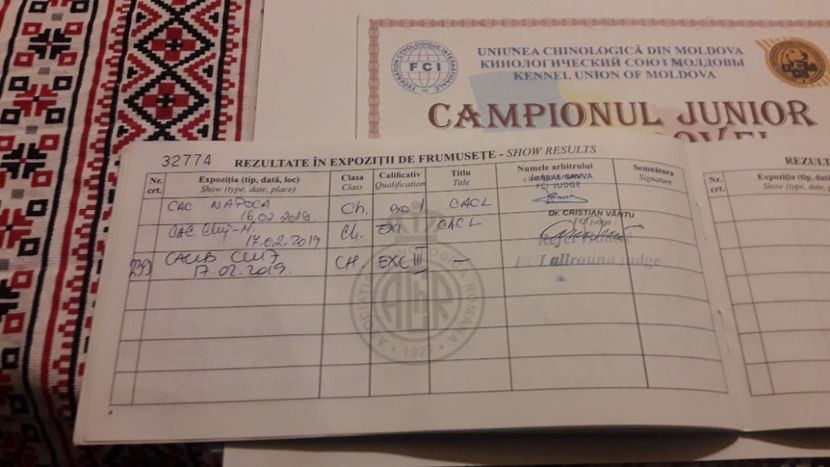 UNIUNEA CHINOLOGICĂ DIN MOLDOVA
КИНОЛОГИЧЕСКИЙ СОЮЗ МОЛДОВЫ
KENNEL UNION OF MOLDOVA
FCI
CAMPIONUL JUNIOR
32774
REZULTATE ÎN EXPOZIȚII DE FRUMUSEȚE - SHOW RESULTS
Nr. crt. Expoziția (tip, dată, loc) Clasa Calificativ Titlu Numele arbitrului Semnătura
Show (type, date, place) Class Qualification Title Signature
CAC NAPOCA Ch. CACL
16.02.2019 FCI JUDGE
CAC Cluj-N. Ch. CACL Dr. CRISTIAN VÂNTU
17.02.2019 FCI judge
239 CACIB CLUJ CH. EXC III —
17.02.2019. FCI allround judge
ASOCIAȚIA CHINOLOGICĂ ROMÂNĂ
AChR
1927
4
REZUL
Nr. crt. Expoziția (tip, dat
Show (type, date